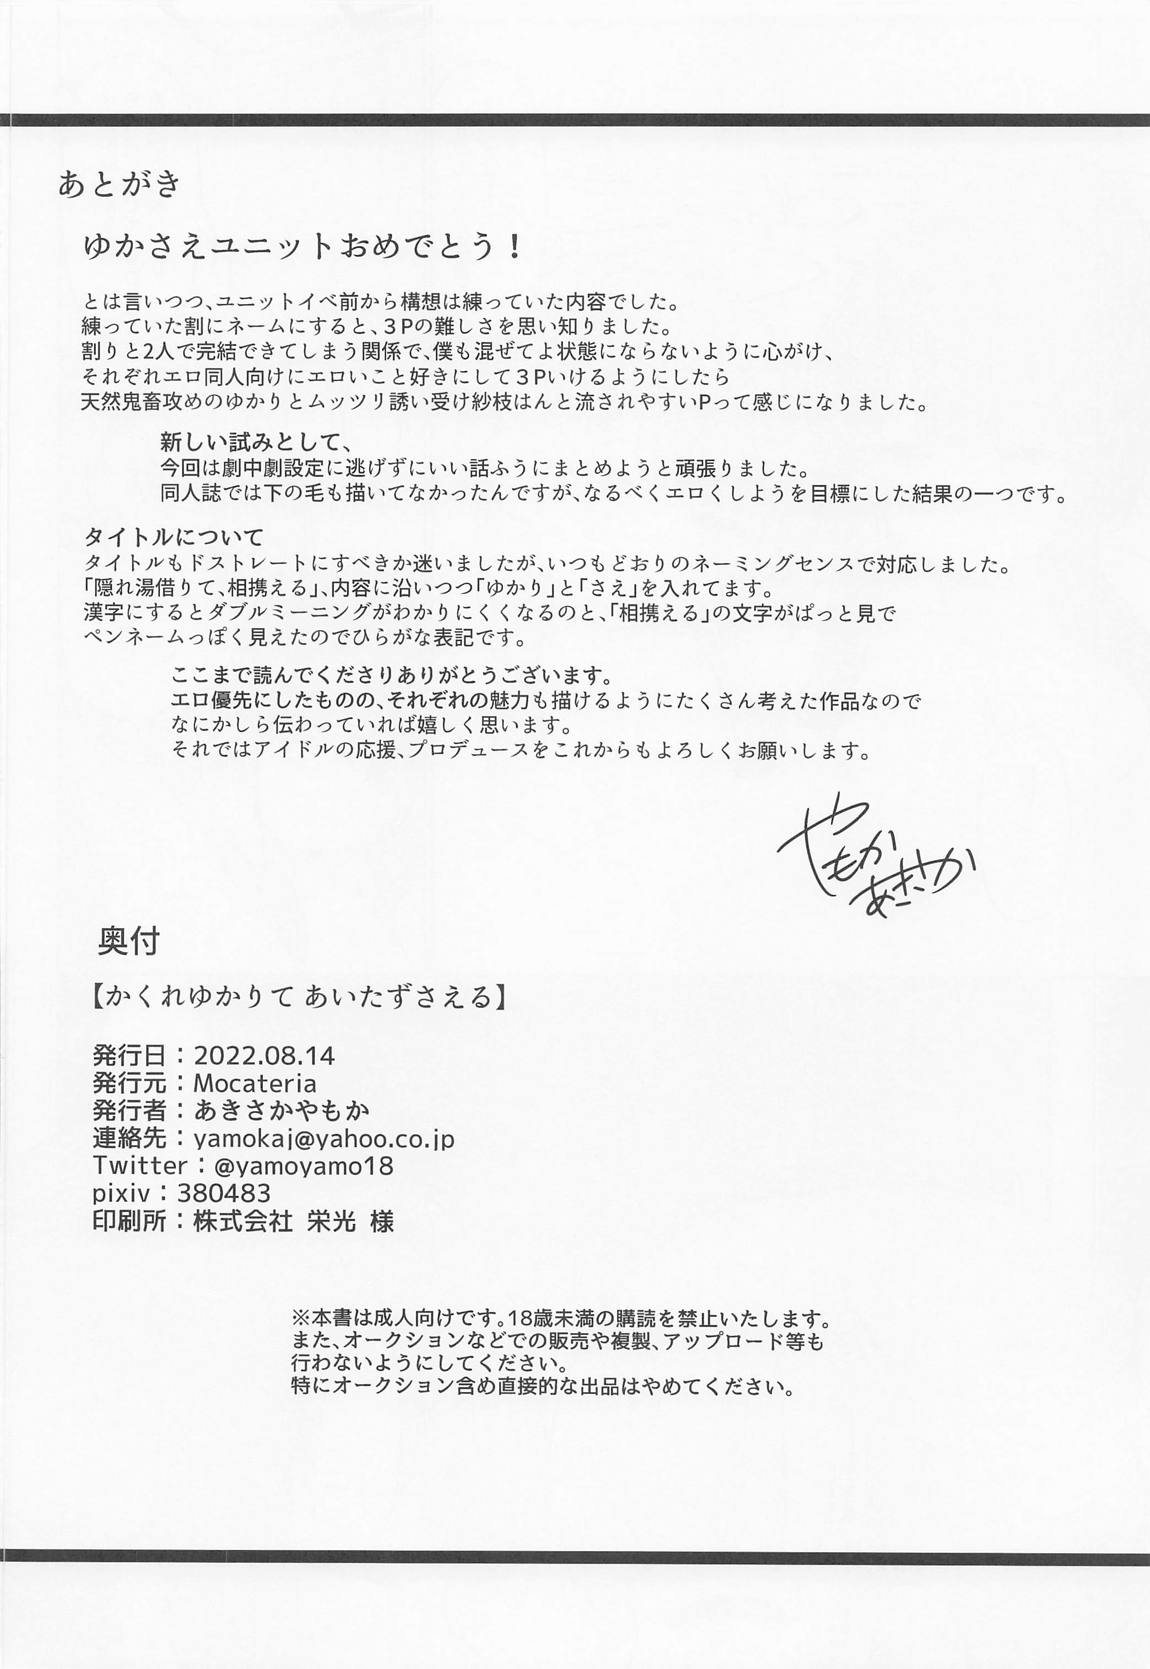 あとがき
ゆかさえユニットおめでとう！
とは言いつつ、ユニットイベ前から構想は練っていた内容でした。
練っていた割にネームにすると、３Pの難しさを思い知りました。
割りと2人で完結できてしまう関係で、僕も混ぜてよ状態にならないように心がけ、
それぞれエロ同人向けにエロいこと好きにして３Pいけるようにしたら
天然鬼畜攻めのゆかりとムッツリ誘い受け紗枝はんと流されやすいPって感じになりました。
新しい試みとして、
今回は劇中劇設定に逃げずにいい話ふうにまとめようと頑張りました。
同人誌では下の毛も描いてなかったんですが、なるべくエロくしようを目標にした結果の一つです。
タイトルについて
タイトルもドストレートにすべきか迷いましたが、いつもどおりのネーミングセンスで対応しました。
「隠れ湯借りて、相携える」、内容に沿いつつ「ゆかり」と「さえ」を入れてます。
漢字にするとダブルミーニングがわかりにくくなるのと、「相携える」の文字がぱっと見で
ペンネームっぽく見えたのでひらがな表記です。
ここまで読んでくださりありがとうございます。
エロ優先にしたものの、それぞれの魅力も描けるようにたくさん考えた作品なので
なにかしら伝わっていれば嬉しく思います。
それではアイドルの応援、プロデュースをこれからもよろしくお願いします。
やもか
あきさか
奥付
【かくれゆかりて あいたずさえる】
発行日：2022.08.14
発行元：Mocateria
発行者：あきさかやもか
連絡先：yamokaj@yahoo.co.jp
Twitter：@yamoyamo18
pixiv：380483
印刷所：株式会社 栄光 様
※本書は成人向けです。18歳未満の購読を禁止いたします。
また、オークションなどでの販売や複製、アップロード等も
行わないようにしてください。
特にオークション含め直接的な出品はやめてください。